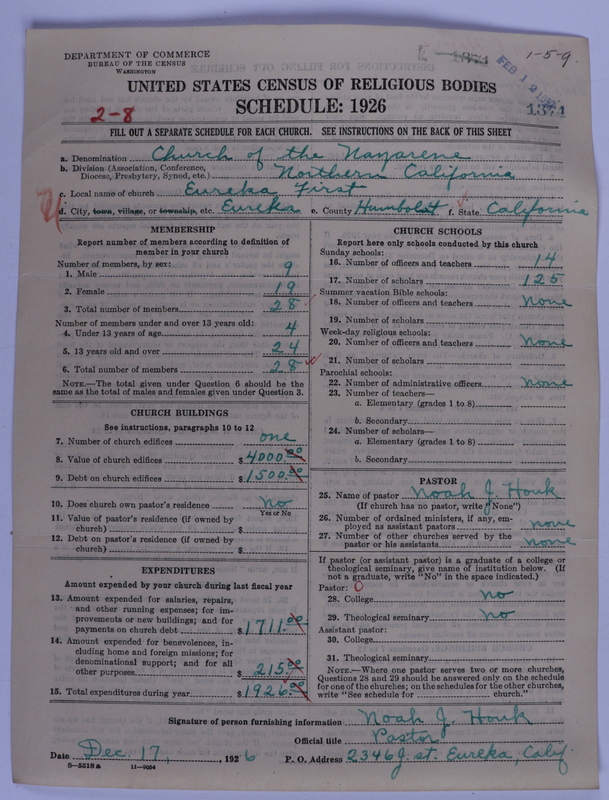 DEPARTMENT OF COMMERCE
BUREAU OF THE CENSUS
WASHINGTON
1-5-9.
UNITED STATES CENSUS OF RELIGIOUS BODIES
SCHEDULE: 1926
2-8
1374
FILL OUT A SEPARATE SCHEDULE FOR EACH CHURCH. SEE INSTRUCTIONS ON THE BACK OF THIS SHEET
a. Denomination Church of the Nazarene
b. Division (Association, Conference, Diocese, Presbytery, Synod, etc.) Northern California
c. Local name of church Eureka First
d. City, town, village, or township, etc. Eureka e. County Humboldt f. State California
MEMBERSHIP
Report number of members according to definition of member in your church
Number of members, by sex:
1. Male 9
2. Female 19
3. Total number of members 28
Number of members under and over 13 years old:
4. Under 13 years of age 4
5. 13 years old and over 24
6. Total number of members 28
NOTE.—The total given under Question 6 should be the same as the total of males and females given under Question 3.
CHURCH BUILDINGS
See instructions, paragraphs 10 to 12
7. Number of church edifices one
8. Value of church edifices $4000.00
9. Debt on church edifices $1500.00
10. Does church own pastor's residence No
Yes or No
11. Value of pastor's residence (if owned by church) $
12. Debt on pastor's residence (if owned by church) $
EXPENDITURES
Amount expended by your church during last fiscal year
13. Amount expended for salaries, repairs, and other running expenses; for improvements or new buildings; and for payments on church debt $1711.00
14. Amount expended for benevolences, including home and foreign missions; for denominational support; and for all other purposes $215.00
15. Total expenditures during year $1926.00
CHURCH SCHOOLS
Report here only schools conducted by this church
Sunday schools:
16. Number of officers and teachers 14
17. Number of scholars 125
Summer vacation Bible schools:
18. Number of officers and teachers None
19. Number of scholars
Week-day religious schools:
20. Number of officers and teachers None
21. Number of scholars
Parochial schools:
22. Number of administrative officers None
23. Number of teachers—
a. Elementary (grades 1 to 8)
b. Secondary
24. Number of scholars—
a. Elementary (grades 1 to 8)
b. Secondary
PASTOR
25. Name of pastor Noah J. Houk
(If church has no pastor, write "None")
26. Number of ordained ministers, if any, employed as assistant pastors none
27. Number of other churches served by the pastor or his assistants none
If pastor (or assistant pastor) is a graduate of a college or theological seminary, give name of institution below. (If not a graduate, write "No" in the space indicated.)
Pastor:
28. College no
29. Theological seminary no
Assistant pastor:
30. College
31. Theological seminary
NOTE.—Where one pastor serves two or more churches, Questions 28 and 29 should be answered only on the schedule for one of the churches; on the schedules for the other churches, write "See schedule for church."
Signature of person furnishing information Noah J. Houk
Official title Pastor
Date Dec. 17, 1926 P. O. Address 2346 J. st. Eureka, Calif
8-5518 a 11-9054